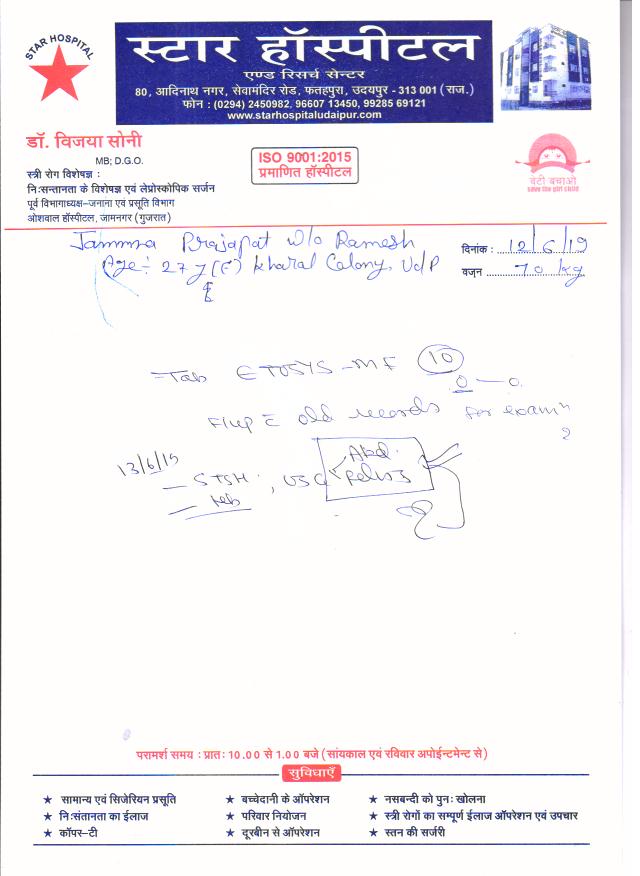 STAR HOSPITAL
स्टार हॉस्पीटल
एण्ड रिसर्च सेन्टर
80, आदिनाथ नगर, सेवामंदिर रोड, फतहपुरा, उदयपुर - 313 001 (राज.)
फोन : (0294) 2450982, 96607 13450, 99285 69121
www.starhospitaludaipur.com
डॉ. विजया सोनी
MB; D.G.O.
स्त्री रोग विशेषज्ञ :
नि:सन्तानता के विशेषज्ञ एवं लेप्रोस्कोपिक सर्जन
पूर्व विभागाध्यक्ष-जनाना एवं प्रसूति विभाग
ओशवाल हॉस्पीटल, जामनगर (गुजरात)
ISO 9001:2015
प्रमाणित हॉस्पीटल
बेटी बचाओ
save the girl child
Jamna Prajapat w/o Ramesh
Age :- 27 y (F) Kharal Colony, Udp
दिनांक : 12/6/19
वजन 70 kg
- Tab ETOSYS-MF 10
0 — 0
F/up c old records for exam
13/6/19
- STSH , USG Abd.
Pelvis
परामर्श समय : प्रात: 10.00 से 1.00 बजे (सांयकाल एवं रविवार अपोईन्टमेन्ट से)
सुविधाएँ
★ सामान्य एवं सिजेरियन प्रसूति ★ बच्चेदानी के ऑपरेशन ★ नसबन्दी को पुन: खोलना
★ नि:संतानता का ईलाज ★ परिवार नियोजन ★ स्त्री रोगों का सम्पूर्ण ईलाज ऑपरेशन एवं उपचार
★ कॉपर-टी ★ दूरबीन से ऑपरेशन ★ स्तन की सर्जरी